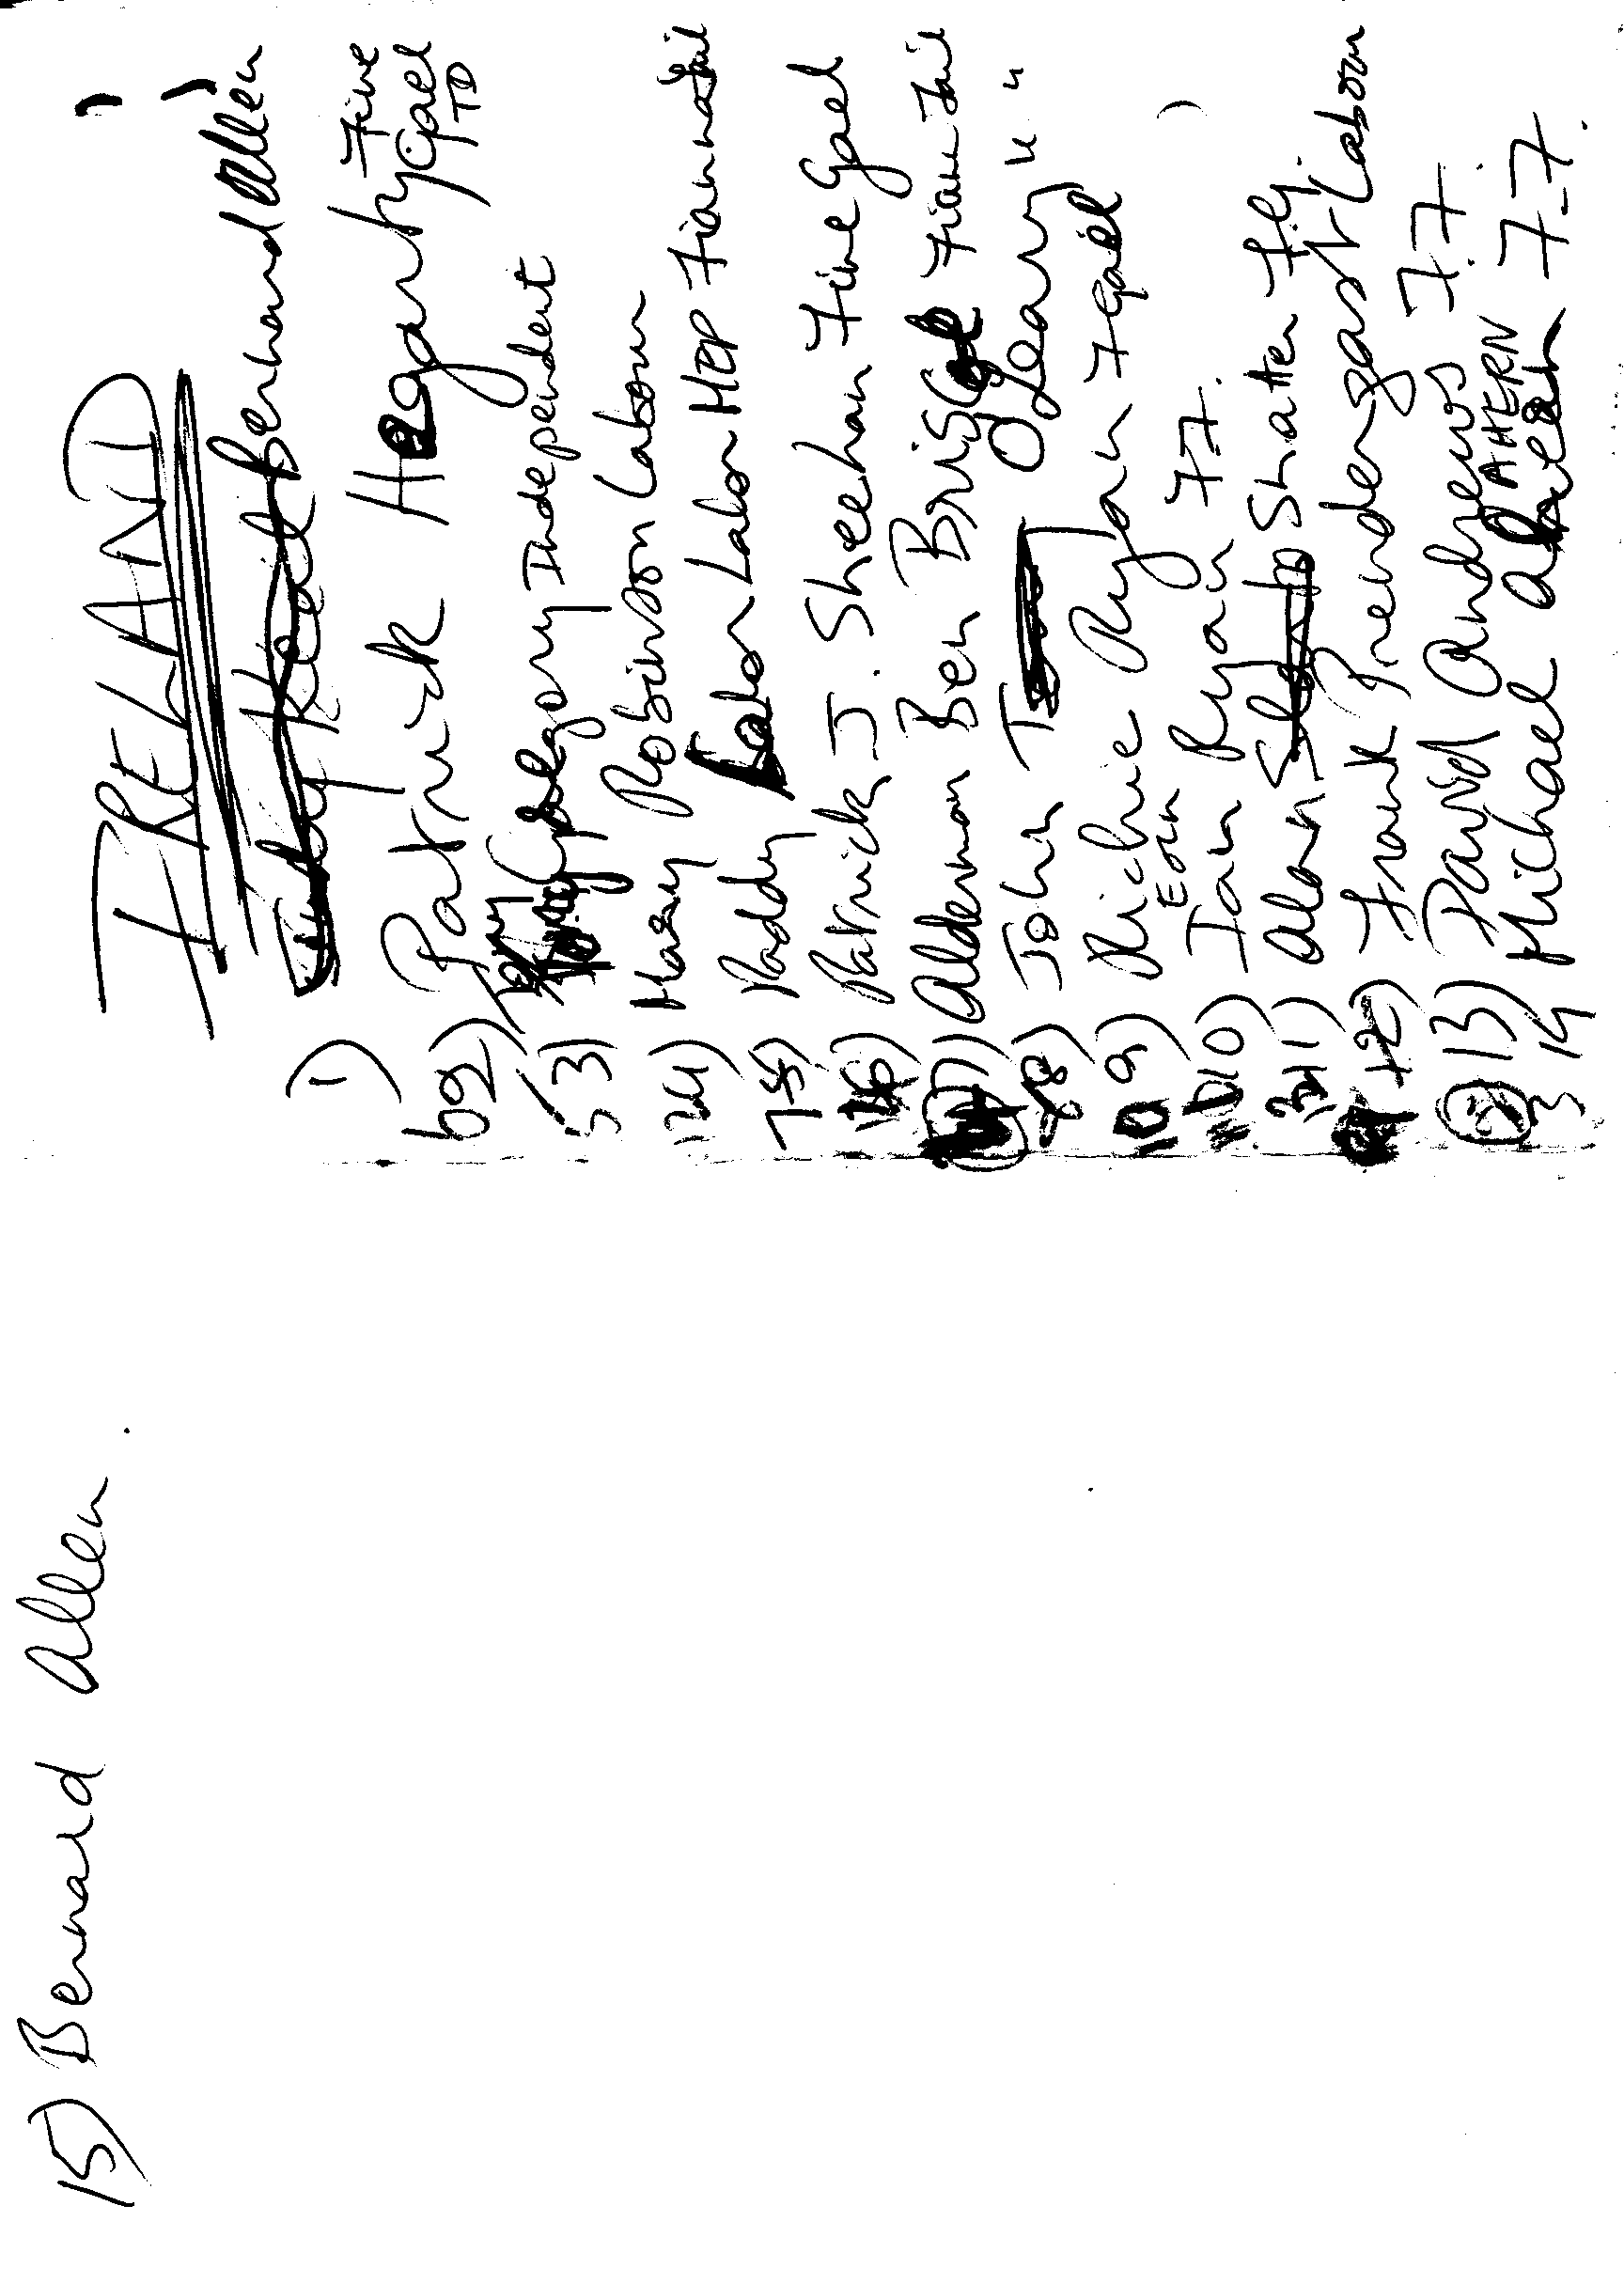 IRELAND
1) Bernard Allen
Patrick Hegarty Fine Gael TD
3) Tony Gregory Independent
4) Mary Robinson Labour
5) Paddy Lalor MEP Fianna Fail
6) Patrick J. Sheehan Fine Gael
7) Alderman Ben Briscoe Fianna Fail
8) John O'Leary " "
9) Richie Ryan F Gael
10) Eoin Ryan F.F.
11) Alan Shatter F.G.
12) Frank Prendergast Labour
13) David Andrews F.F.
14 Michael AHERN F-F.
15) Bernard Allen.